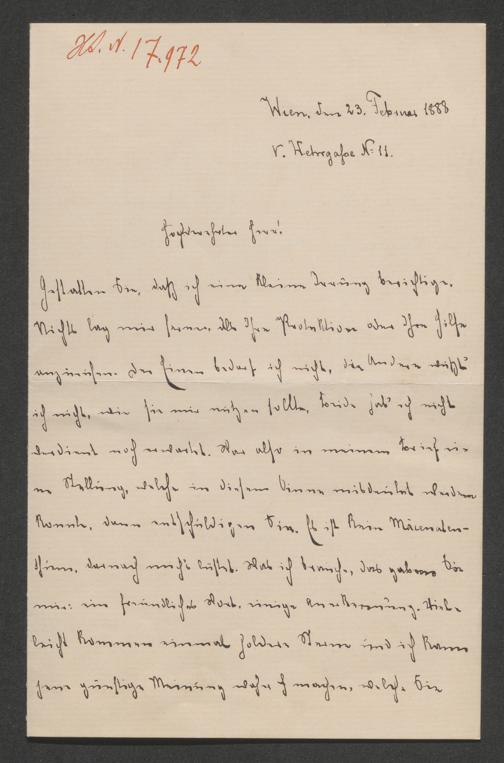 HS. N. 17.972
Wien, den 23. Februar 1888
V. Wehrgasse No 11.
Hochverehrter Herr!
Gestatten Sie, daß ich eine kleine Irrung berichtige.
Nichts lag mir ferner, als Ihre Protektion oder Ihre Hilfe
anzurufen. Der Einen bedarf ich nicht, die Andere wüßt'
ich nicht, wie sie mir nützen sollte, beide hab' ich nicht
verdient noch erwartet. War also in meinem Brief ei-
ne Stellung, welche in diesem Sinne misdeutet werden
konnte, dann entschuldigen Sie. Es ist kein Mäcenaten-
thum, darnach mich's lüstet. Was ich brauche, das gaben Sie
mir: ein freundliches Wort, einige Anerkennung. Viel-
leicht kommen einmal holdere Sterne und ich kann
jene günstige Meinung wahr machen, welche Sie